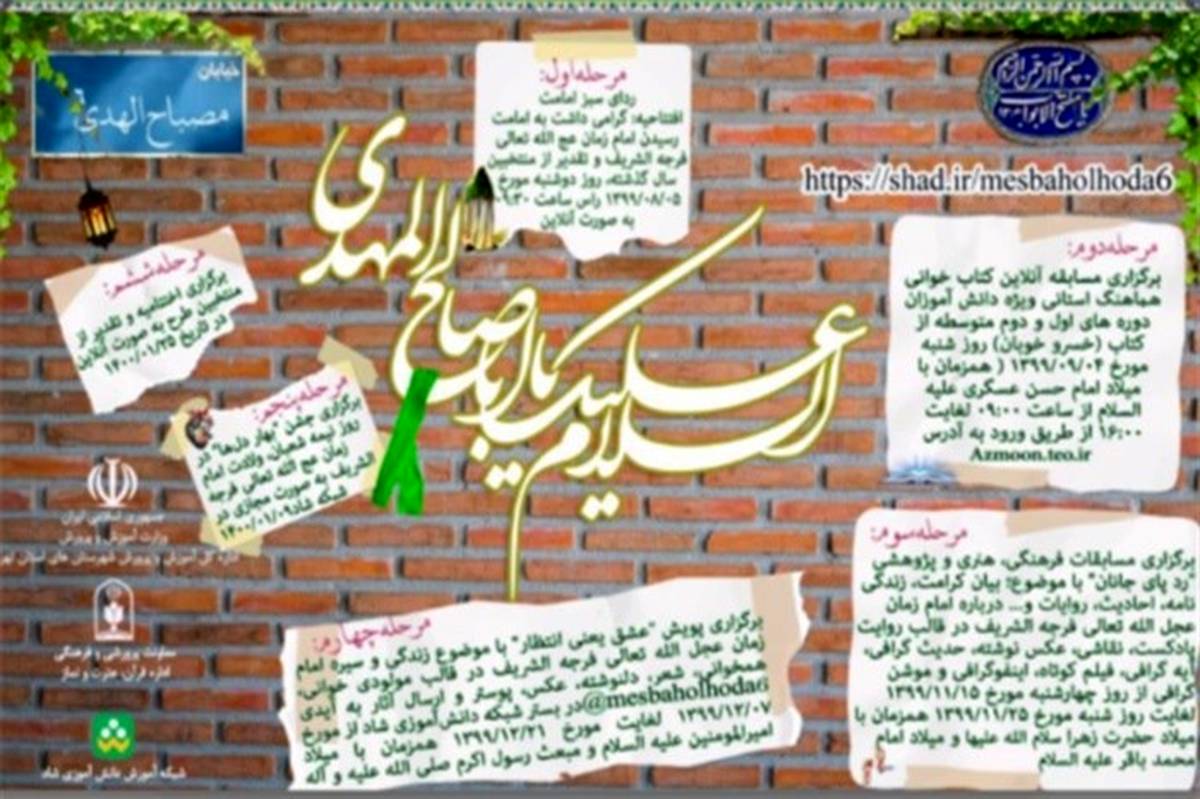 بسم الله الرحمن الرحیم
یا مفتح الابواب
خیابان
مصباح الهدی
https://shad.ir/mesbaholhoda6
السلام علیک یا اباصالح المهدی
مرحله اول:
ردای سبز امامت
افتتاحیه: گرامی داشت به امامت
رسیدن امام زمان عج الله تعالی
فرجه الشریف و تقدیر از منتخبین
سال گذشته، روز دوشنبه مورخ
۱۳۹۹/۰۸/۰۵ راس ساعت ۰۹:۳۰
به صورت آنلاین
مرحله دوم:
برگزاری مسابقه آنلاین کتاب خوانی
هماهنگ استانی ویژه دانش آموزان
دوره های اول و دوم متوسطه از
کتاب (خسرو خوبان) روز شنبه
مورخ ۱۳۹۹/۰۹/۰۴ ( همزمان با
میلاد امام حسن عسکری علیه
السلام از ساعت ۰۹:۰۰ لغایت
۱۶:۰۰ از طریق ورود به آدرس
Azmoon.teo.ir
مرحله سوم:
برگزاری مسابقات فرهنگی، هنری و پژوهشی
"رد پای جانان" با موضوع؛ بیان کرامت، زندگی
نامه، احادیث، روایات و... درباره امام زمان
عجل الله تعالی فرجه الشریف در قالب روایت
پادکست، نقاشی، عکس نوشته، حدیث گرافی،
آیه گرافی، فیلم کوتاه، اینفوگرافی و موشن
گرافی از روز چهارشنبه مورخ ۱۳۹۹/۱۱/۱۵
لغایت روز شنبه مورخ ۱۳۹۹/۱۱/۲۵ همزمان با
میلاد حضرت زهرا سلام الله علیها و میلاد امام
محمد باقر علیه السلام
مرحله چهارم:
برگزاری پویش "عشق یعنی انتظار" با موضوع زندگی و سیره امام
زمان عجل الله تعالی فرجه الشریف در قالب مولودی خوانی،
همخوانی، شعر، دلنوشته، عکس، پوستر و ارسال آثار به آیدی
@mesbaholhoda6 در بستر شبکه دانش آموزی شاد از مورخ
۱۳۹۹/۱۲/۰۷ لغایت مورخ ۱۳۹۹/۱۲/۲۱ همزمان با میلاد
امیرالمومنین علیه السلام و مبعث رسول اکرم صلی الله علیه و آله
مرحله پنجم:
برگزاری جشن "بهار دل‌ها" در
روز نیمه شعبان ولادت امام
زمان عج الله تعالی فرجه
الشریف به صورت مجازی در
شبکه شاد ۱۴۰۰/۰۱/۰۹
مرحله ششم:
برگزاری اختتامیه و تقدیر از
منتخبین طرح به صورت آنلاین
در تاریخ ۱۴۰۰/۰۱/۲۵
جمهوری اسلامی ایران
وزارت آموزش و پرورش
اداره کل آموزش و پرورش شهرستان های استان تهران
معاونت پرورشی و فرهنگی
اداره قرآن، عترت و نماز
شبکه آموزش دانش آموزی شاد